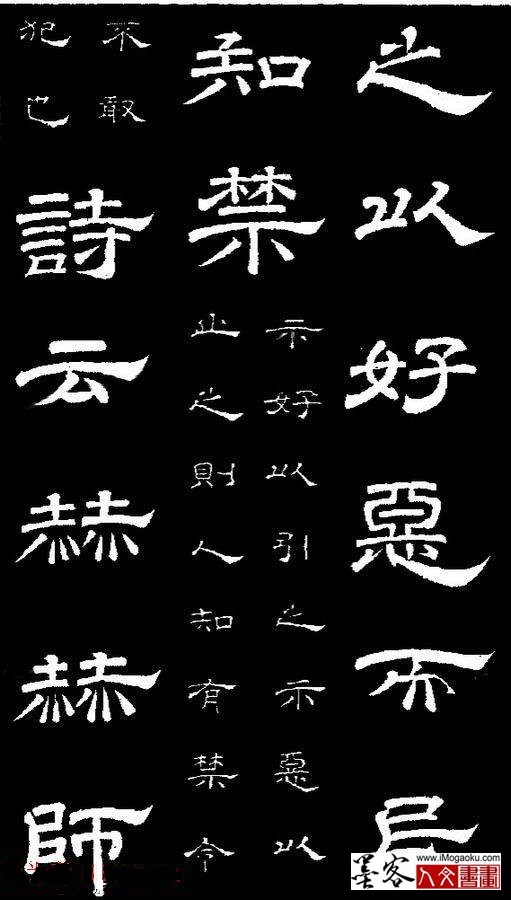 之以好惡而民
知禁
示好以引之示惡以
止之則人知有禁令
不敢
犯也
詩云赫赫師
墨客
www.iMogaoku.com
人文書畫